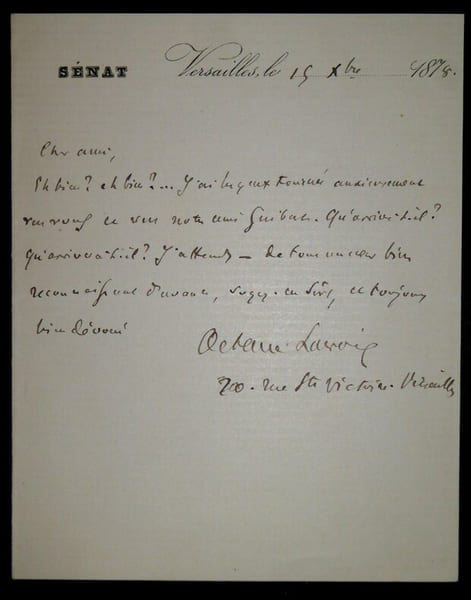 SÉNAT
Versailles, le 15 Xbre 1878.
Cher ami,
Eh bien? eh bien?... J'ai les yeux tournés anxieusement
vers vous et vers notre ami Guibard. Qu'arrive-t-il?
Qu'arrivera-t-il? J'attends — de tout cœur bien
reconnaissant d'avance, soyez-en sûr, et toujours
bien dévoué
Octave Lacroix
rue Ste Victoire. Versailles